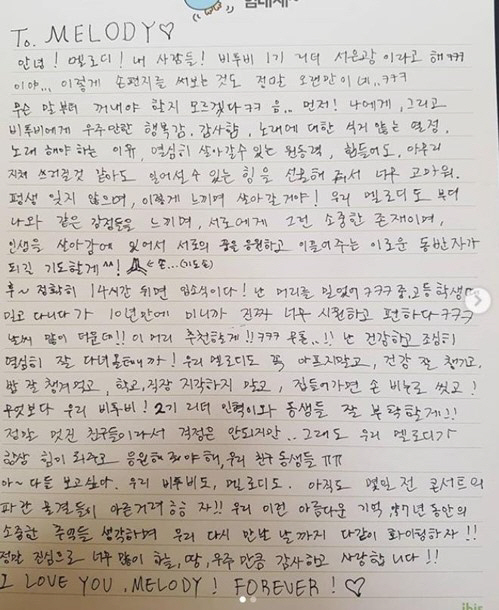 To. MELODY♡
안녕! 멜로디! 내 사람들! 비투비 1기 리더 서은광이라고 해 ㅋㅋㅋ
이야... 이렇게 손편지를 써보는 것도 정말 오랜만이네..ㅋㅋㅋ
무슨 말부터 꺼내야 할지 모르겠다ㅋㅋ 음.. 먼저! 나에게, 그리고
비투비에게 우주만한 행복감, 감사함, 노래에 대한 식지 않는 열정,
노래 해야 하는 이유, 열심히 살아갈수 있는 원동력, 힘들어도, 아무리
지쳐 쓰러질것 같아도 일어설 수 있는 힘을 선물해 줘서 너무 고마워.
평생 잊지 않으며, 이렇게 느끼며 살아갈거야! 우리 멜로디도 부디
나와 같은 감정들을 느끼며, 서로에게 그런 소중한 존재이며,
인생을 살아감에 있어서 서로의 꿈을 응원하고 이끌어주는 이로운 동반자가
되길 기도할게^^! 🙏←손...(기도손)
후~ 정확히 14시간 뒤면 입소식이다! 난 머리를 밀었어ㅋㅋㅋ 중,고등학생때
밀고 다니다가 10년만에 미니까 진짜 너무 시원하고 편하다ㅋㅋㅋ
날씨 많이 더운데!! 이 머리 추천할게!! ㅋㅋㅋ 무튼..!! 난 건강하고 조심히
열심히 잘 다녀올테니까! 우리 멜로디도 꼭 아프지말고, 건강 잘 챙기고,
밥 잘 챙겨먹고, 학교,직장 지각하지 말고, 집들어가면 손 비누로 씻고!
무엇보다 우리 비투비! 2기 리더 민혁이와 동생들 잘 부탁할게!!
정말 멋진 친구들이라서 걱정은 안되지만.. 그래도 우리 멜로디가
항상 힘이 되주고 응원해 줘야해, 우리 친구 동생들 ㅠㅠ
아~ 다들 보고싶다. 우리 비투비도, 멜로디도. 아직도 몇일 전 콘서트의
파란 물결들이 아른거려 흠흠 자!! 우리 이런 아름다운 기억, 약7년 동안의
소중한 추억들 생각하며 우리 다시 만날 날까지 다같이 화이팅하자!!
정말 진심으로 너무 많이 하늘,땅,우주 만큼 감사하고 사랑합니다!!
I LOVE YOU. MELODY! FOREVER! ♡